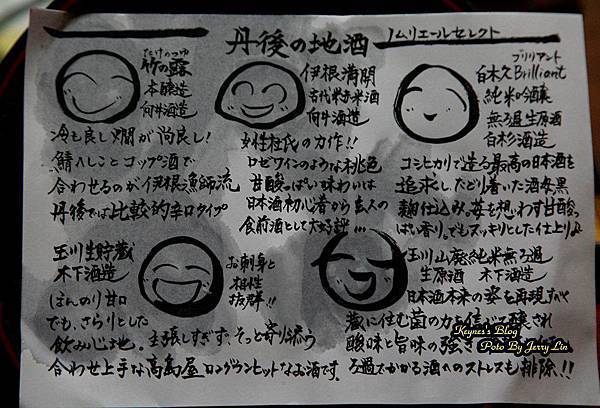 丹後の地酒
ノムリエールセレクト
たけのつゆ
竹の露
本醸造
向井酒造
冷も良し燗が尚良し!
鯖へしことコップ酒で
合わせるのが伊根漁師流
丹後では比較的辛口タイプ
伊根満開
古代米赤米酒
向井酒造
女性杜氏の力作!!
ロゼワインのような桃色
甘酸っぱい味わいは
日本酒初心者から玄人の
食前酒として大好評...
ブリリアント
白木久Brilliant
純米吟醸
無ろ過生原酒
白杉酒造
コシヒカリで造る最高の日本酒を
追求し、たどり着いた酒母黒
麹仕込み。苺を想わす甘酸っ
ぱい香り。でもスッキリとした仕上り♪
玉川生貯蔵
木下酒造
ほんのり甘口
でも、さらりとした
飲み心地。主張しすぎず、そっと寄り添う
合わせ上手な高島屋ロングランヒットなお酒です。
お刺身と
相性
抜群!!
玉川山廃純米無ろ過
生原酒 木下酒造
日本酒本来の姿を再現すべく
蔵に住む菌の力を信じて醸され
酸味と旨味の強さ
ろ過でかかる酒へのストレスも排除!!
Keynes's Blog
Poto By Jerry Lin